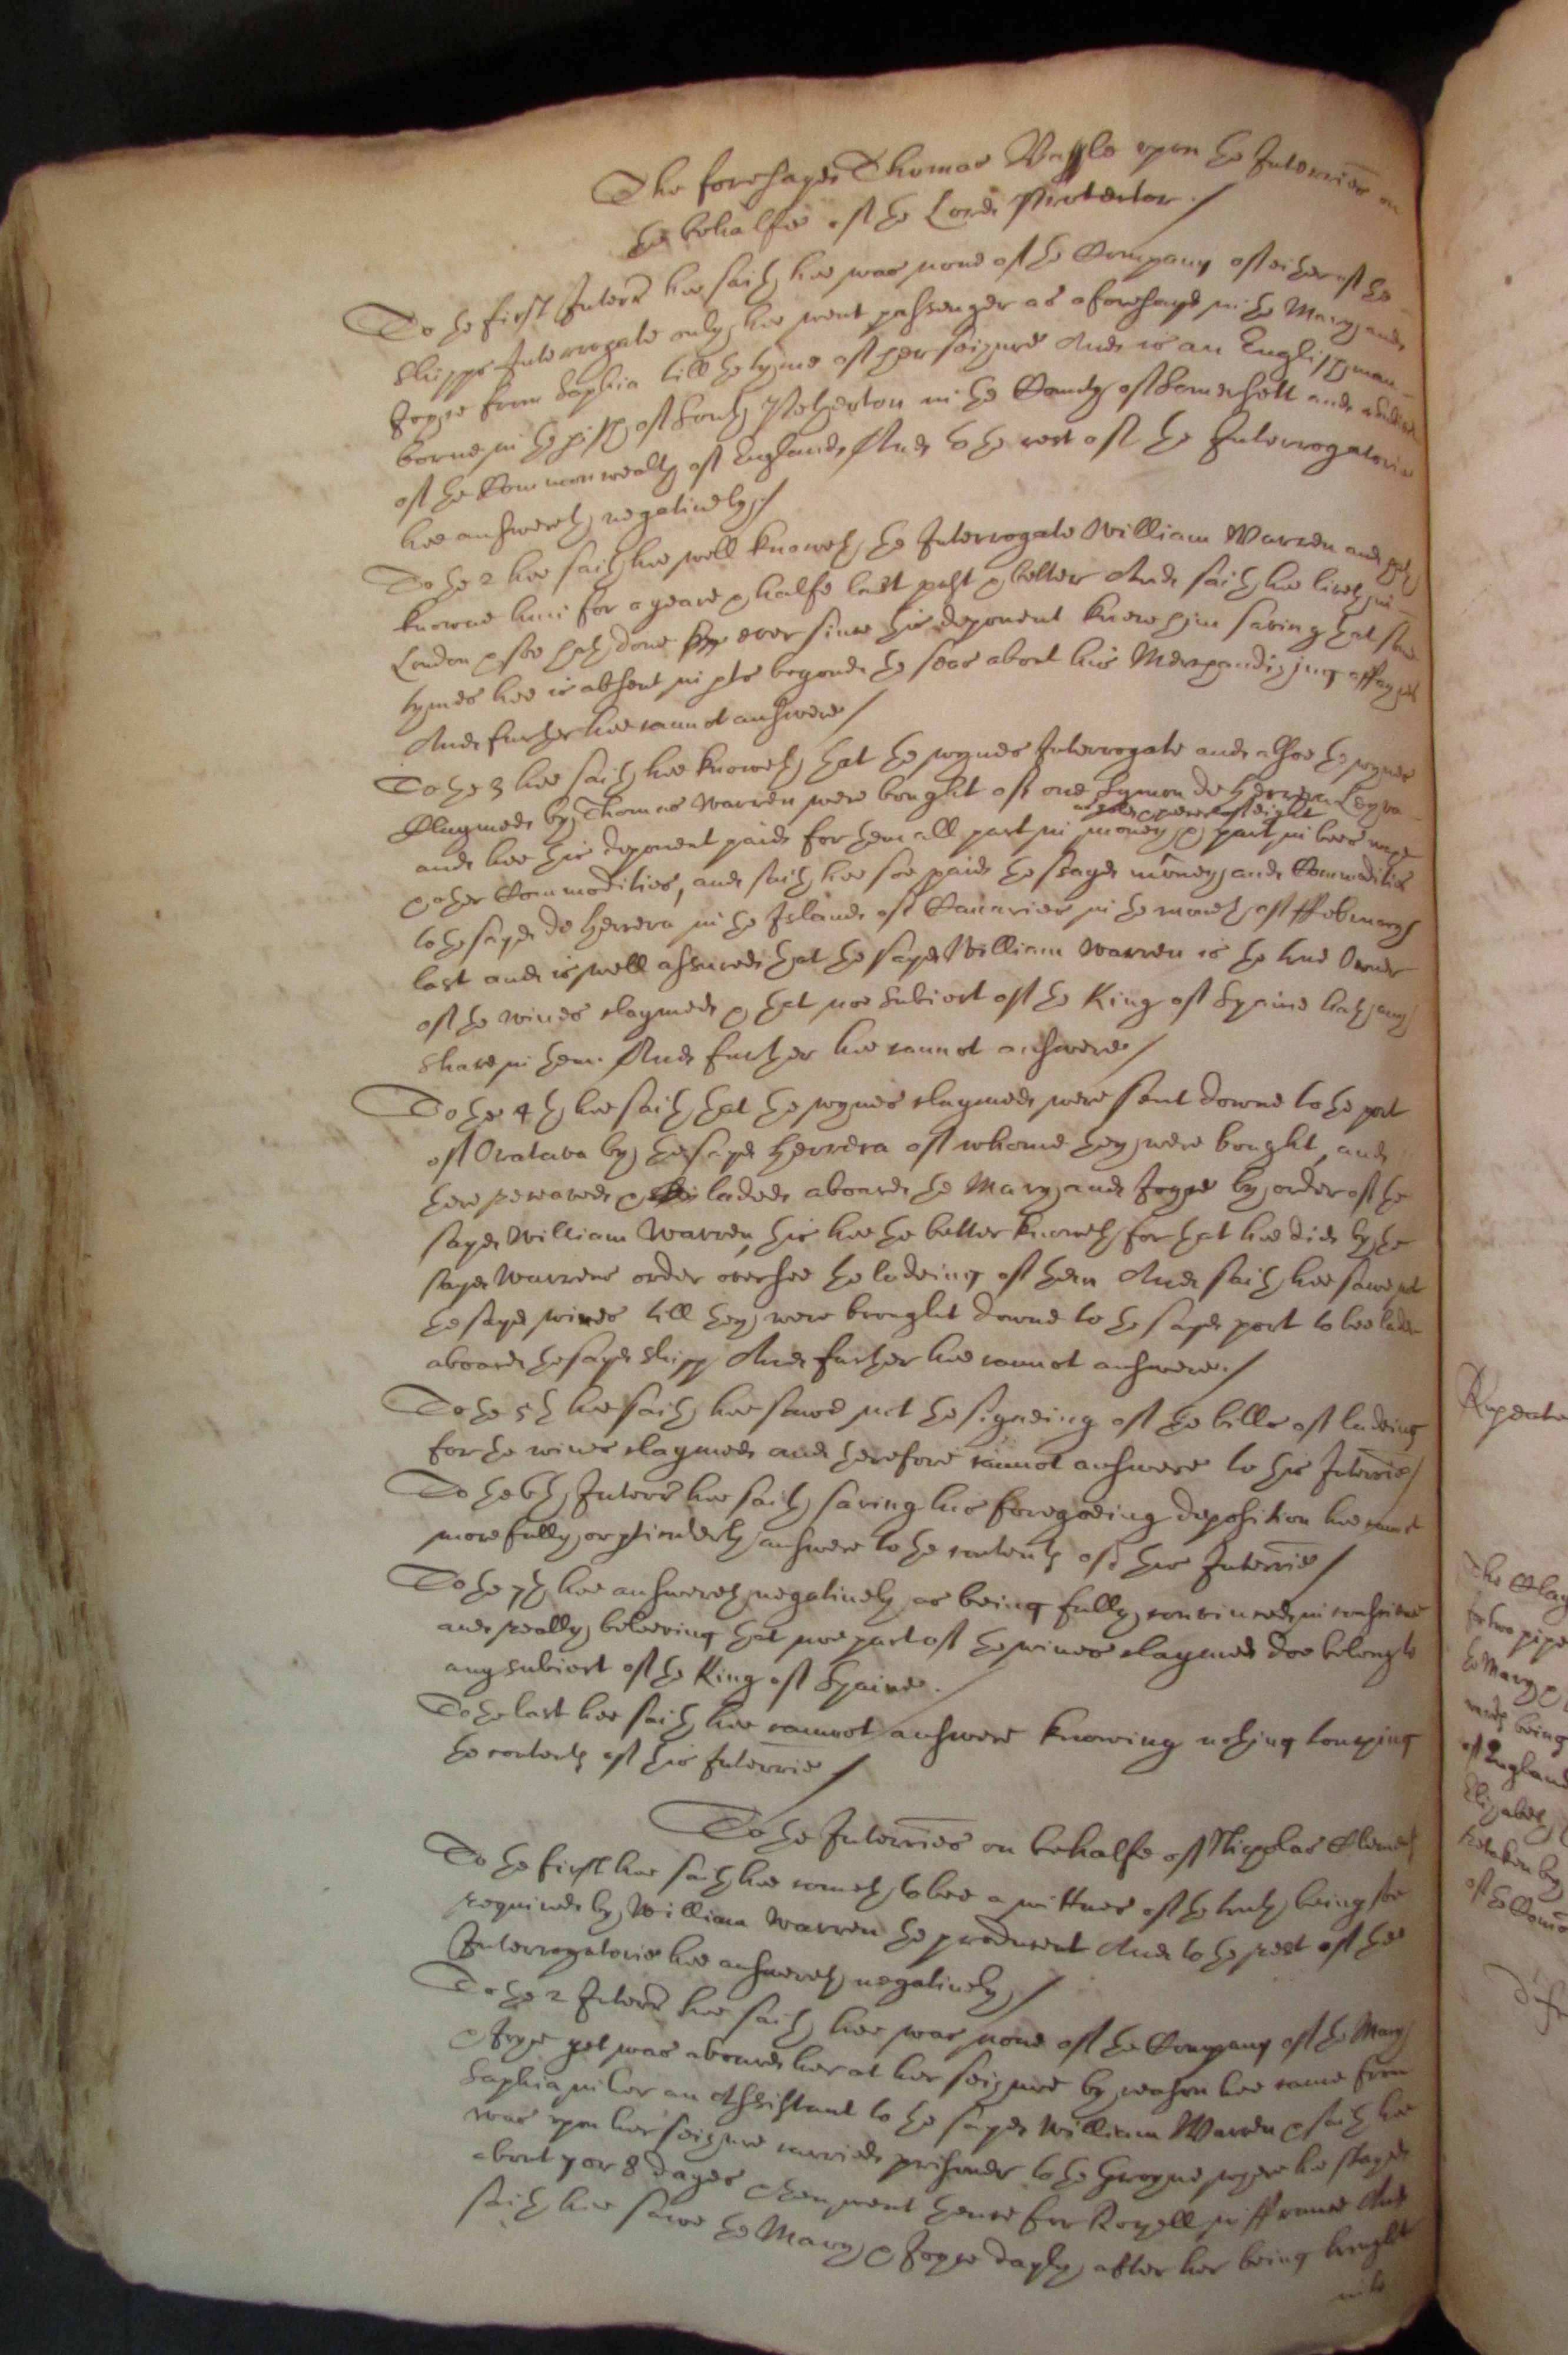 The foresayd Thomas upon the Interries on
the behalfe of the Lord Protector./
To the first Interr hee saith hee was none of the Company of either of the
shipps Interrogate only hee went passenger as aforesayd in the Mary and
Joyce from Saphia till the tyme of her seizure And is an Englishman
borne in the pish of South Petherton in the County of Somersett and
of the Common wealth of England And to the rest of the Interrogatorie
hee answereth negatively./
To the 2 hee saith hee well knoweth the Interrogate William Warren and hath
knowne him for a yeare & halfe last past & better And saith hee liveth in
London & soe hath done ever since this deponent knew him saving that some
tymes hee is absent in pts beyond the seas about his Merchandizing affayres
And further hee cannot answere/
To the 3 hee saith hee knoweth that the wynes Interrogate and alsoe the wynes
Claymed by Thomas Warren were bought of one Symon de Herrera Leyva
and hee this deponent paid for them all part in money & part in bees waxe
& other Commodities, and saith hee soe paid the sayd money and Commodities
to the sayd de Herrera in the Island of Canaries in the moneth of ffebruary
last and is well assured that the sayd William Warren is the true Owner
of the wines claymed & that noe subiect of the King of Spaine hath any
share in them. And further hee cannot answere/
To the 4th hee saith that the wynes claymed were sent downe to the port
of Oratava by the sayd Herrera of whome they were bought, and
there receaved & laded aboard the Mary and Joyce by order of the
sayd William Warren, this hee the better knoweth for that hee did by the
sayd Warrens order oversee the ladeing of them And saith hee sawe not
the sayd wines till they were brought downe to the sayd port to bee laden
aboard the sayd shipp And further hee cannot answere./
To the 5th hee saith hee sawe not the signeing of the bills of ladeing
for the wines claymed and therefore cannot answere to this Interrie/
To the 6th Interr hee saith saving his foregoeing deposition hee cannot
more fully or pticulerly answere to the contents of this Interrie/
To the 7th hee answereth negatively as being fully convinced in conscience
and really beleeving that noe part of the wines claymed doe belong to
any subiect of the King of Spaine./
To the last hee saith hee cannot answere knowing nothing touching
the contents of this Interrie/
To the Interries on behalfe of Nicholas
To the first hee saith hee cometh to bee a wittnes of the truth being soe
required by William Warren the producent And to the rest of the
Interrogatorie hee answereth negatively/
To the 2 Interr hee saith hee was none of the Company of the Mary
& Joyce yet was aboard her at her seizure by reason hee came from
Saphia in her an Assistant to the sayd William Warren & saith hee
was upon her seizure carried prisoner to the Groyne where hee stayed
about 7 or 8 dayes & then went thence for Rochell in ffrance And
saith hee sawe the Mary & Joyce dayly after her being brought
into
The Clay
for two pipes
the Mary &
being
of England
Elizabeth
retaken by
of the Comon